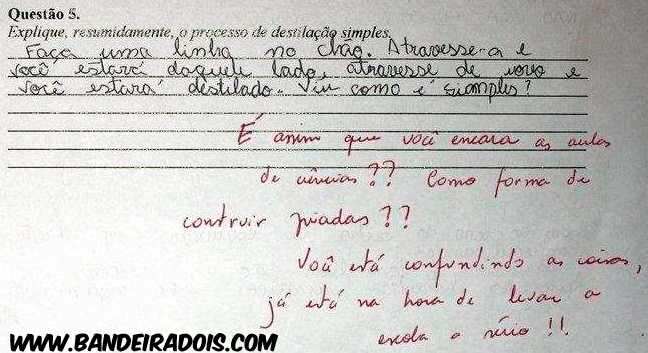 Questão 5.
Explique, resumidamente, o processo de destilação simples.
Faça uma linha no chão. Atravesse-a e
você estará daquele lado, atravesse de novo e
você estara destilado. Viu como é simples?
É assim que você encara as aulas
de ciências?? Como forma de
construir piadas??
Você está confundindo as coisas,
já está na hora de levar a
escola a sério!!
WWW.BANDEIRADOIS.COM